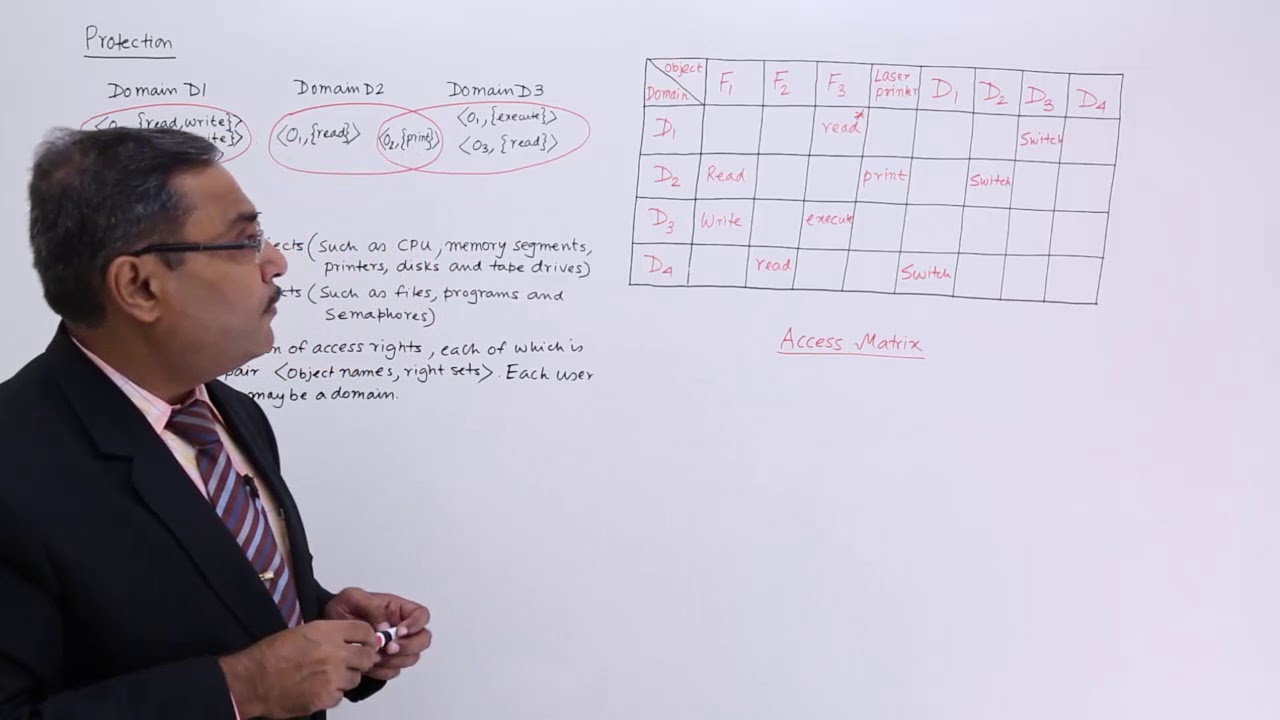 Protection
Domain D1 Domain D2 Domain D3
{read,write}⟩ ⟨O1,{read}⟩ ⟨O2,{print}⟩ ⟨O1,{execute}⟩
⟨O3,{read}⟩
(Such as CPU, memory segments,
printers, disks and tape drives)
(Such as files, programs and
Semaphores)
of access rights, each of which is
pair ⟨object names, right sets⟩. Each user
may be a domain.
Object Domain F1 F2 F3 Laser printer D1 D2 D3 D4
D1 read* Switch
D2 Read print Switch
D3 Write execute
D4 read Switch
Access Matrix